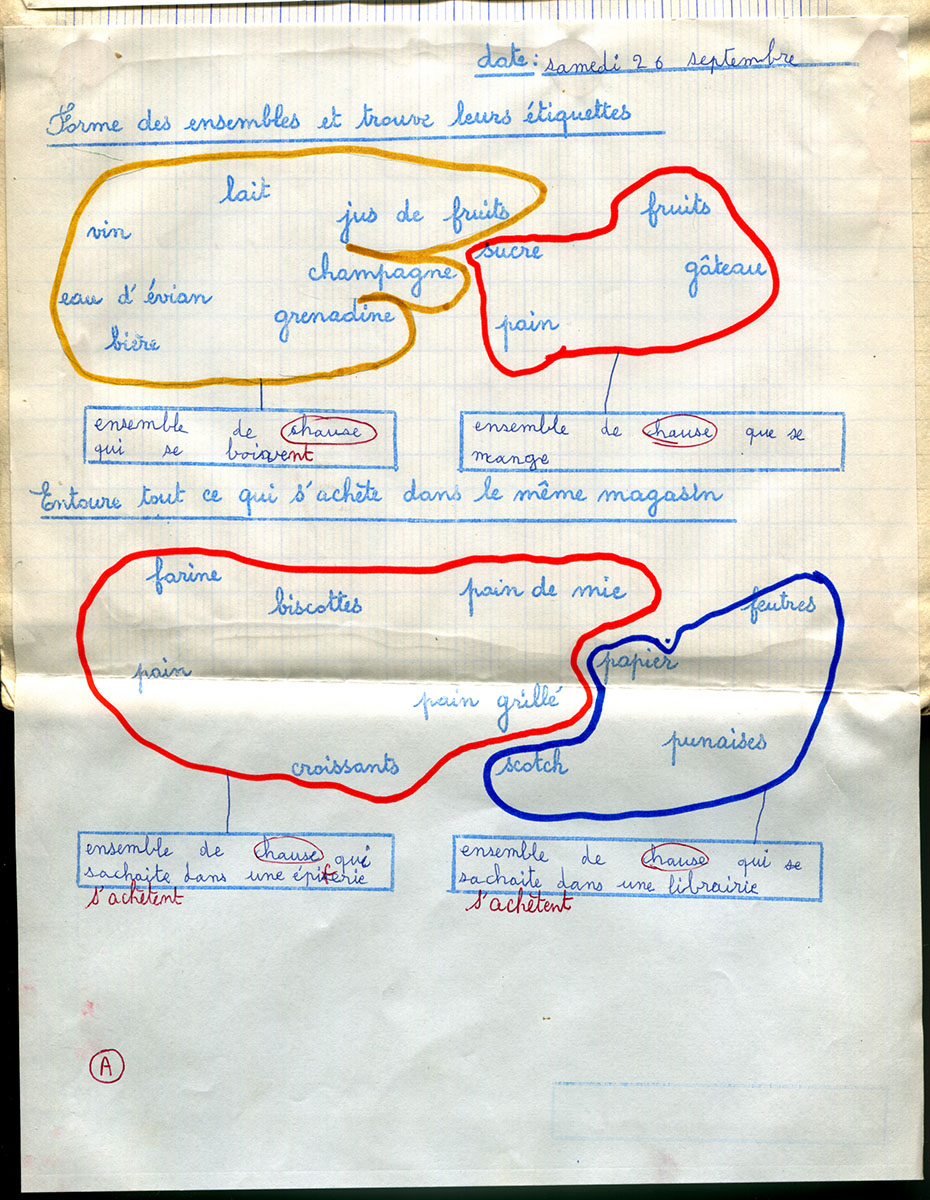 date: samedi 26 septembre
Forme des ensembles et trouve leurs étiquettes
lait
jus de fruits
vin
champagne
eau d'évian
grenadine
bière
fruits
sucre
gâteau
pain
ensemble de chause
qui se boivent
ensemble de chause que se
mange
Entoure tout ce qui s'achète dans le même magasin
farine
biscottes
pain de mie
pain
pain grillé
croissants
feutres
papier
punaises
scotch
ensemble de chause qui
sachaite dans une épiferie
s'achètent
ensemble de chause qui se
sachaite dans une librairie
s'achètent
A